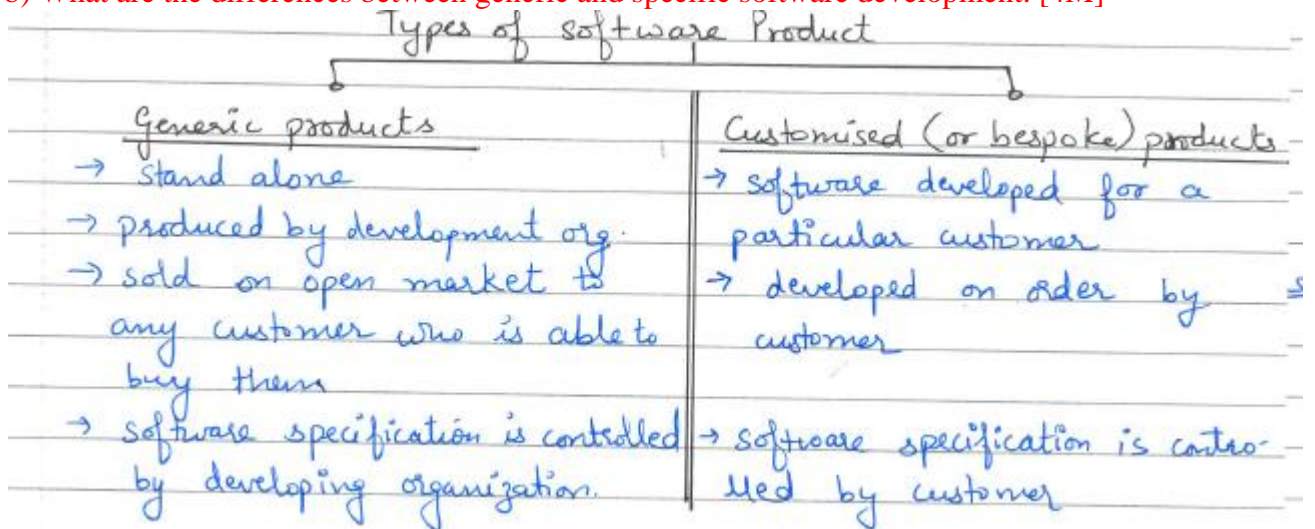 b) What are the differences between generic and specific software development. [4M]
Types of software Product
Generic products
→ Stand alone
→ produced by development org.
→ sold on open market to
any customer who is able to
buy them
→ software specification is controlled
by developing organization.
Customised (or bespoke) products
→ software developed for a
particular customer
→ developed on order by
customer
→ software specification is contro-
lled by customer